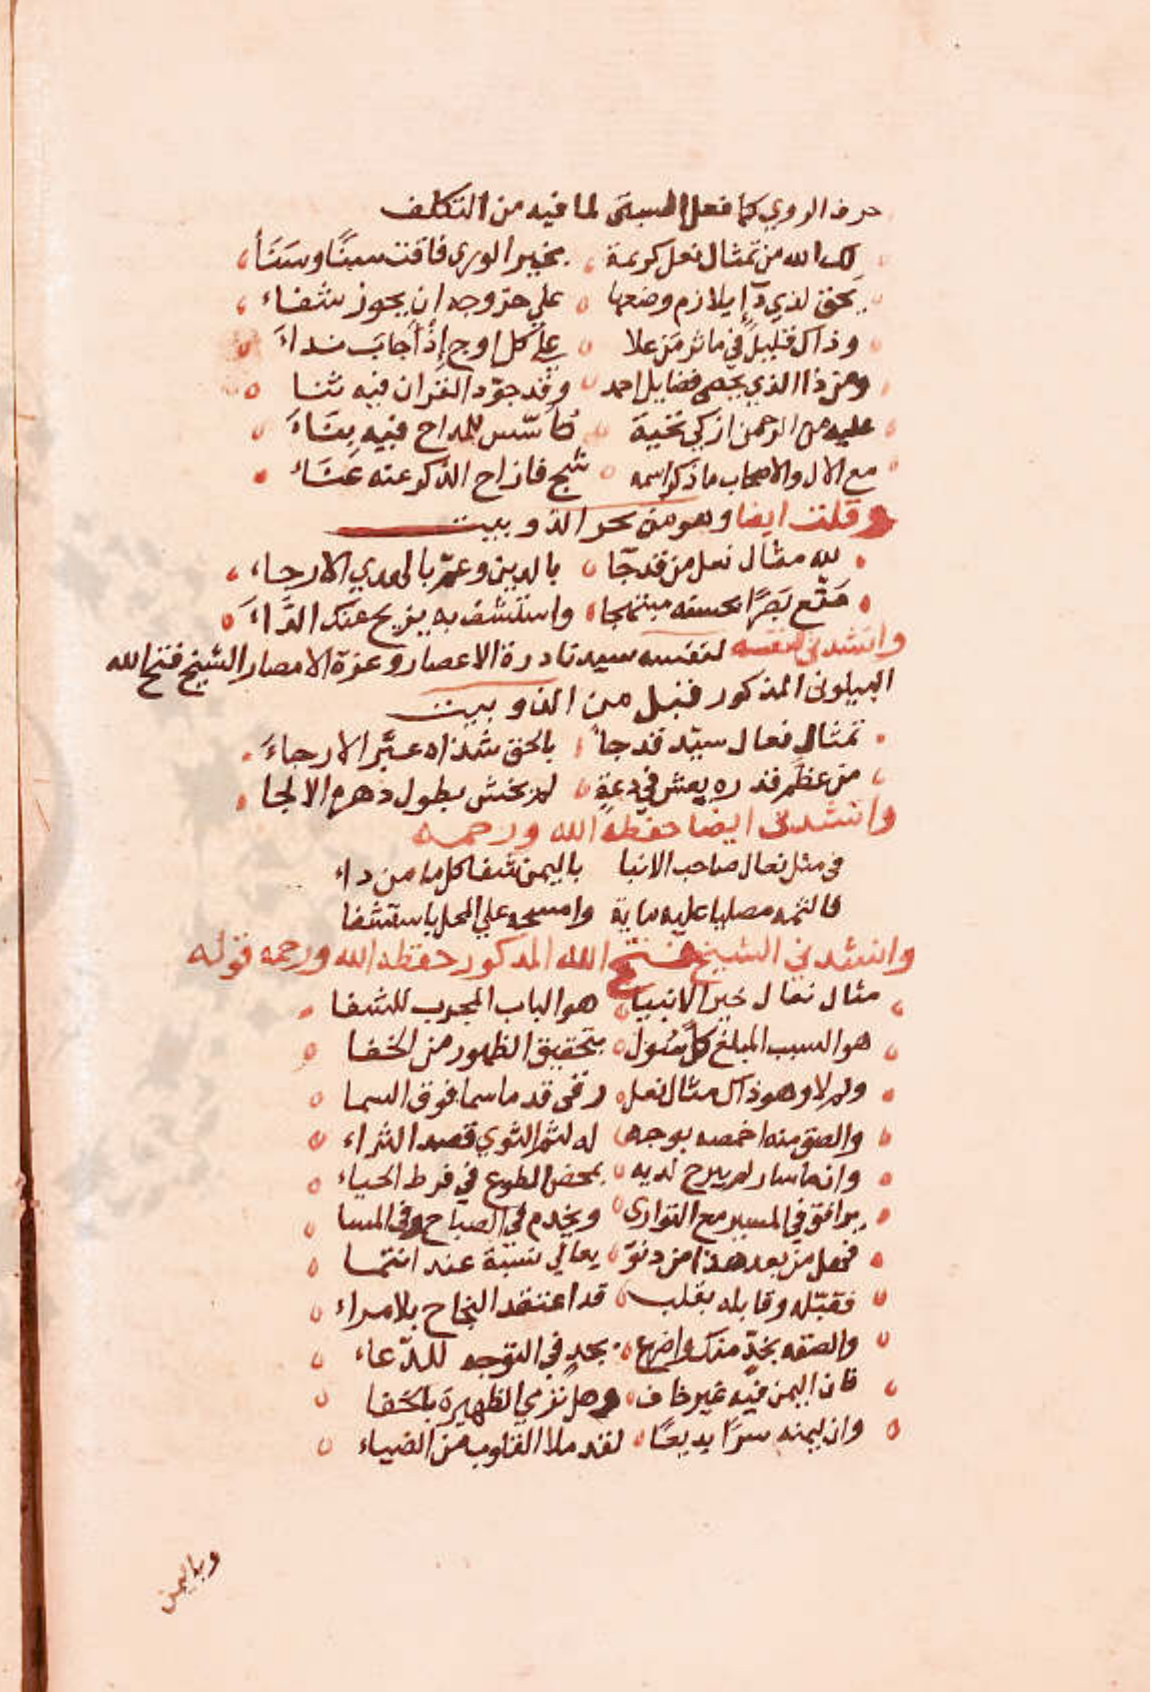 حرف الروي كما فعل السبتي لما فيه من التكلف
لك الله من تمثال نعل كريمة بخير الورى فاقت سنًا وسَنَأ
بحق لذي دآءٍ يلازم وضعها على حر وجه ان يحوز شفاء
وذاك قليل في ماثر من علا على كل اوج إذا أجاب نداءَ
ومن ذا الذي يحصى فضايل احمد وقد جود القران فيه ثنا
عليه من الرحمن ازكي تحية تاسّس للمداح فيه بناءَ
مع الال والاصحاب ما ذكر اسمه شج فازاح الذكر عنه عناء
وقلت ايضا وهو من بحر الذوبيت
لله مثال نعل من قد جآ بالدين وعمّ بالهدي الارجاء
مَتّع بَصَرًا بحسنه مبتهجا واستشف به يزيح عنك الدَّاءَ
وانشدني لنفسه سيد نادرة الاعصار وعزة الامصار الشيخ فتح الله
البيلوني المذكور قبل من الذوبيت
تمثال نعال سيّد قد جآ بالحق شذاه عبّر الارجاءَ
من عظّم قدره يعش في دعةٍ لم يخش بطول دهره الالجا
وانشدني ايضا حفظه الله ورحمه
في مثل نعال صاحب الانبا باليمن شفا كل ما من داء
فالثمه مصليا عليه ماية وامسحه علي المحل باستشفا
وانشدني الشيخ فتح الله المذكور حفظه الله ورحمه قوله
مثال نعال خير الانبيا هو الباب المجرب للشفا
هو السبب المبلغ كل سُول بتحقيق الظهور من الخفا
ولم لا وهو ذاك مثال نعل رقى قدما سما فوق السما
والصق منه اخمصه بوجه له لثم الثوي قصد الثراء
وانما سار لم يبرح لديه بمحض الطوع في فرط الحياء
يرافق في المسير مع التواري ويخدم في الصباح وفي المسا
فهل من بعد هذا من دنوّ يعالي نسبة عند انتما
فقبّله وقابله بقلب قد اعتقد النجاح بلا مراء
والصقه بخدّ منك واضرع بجد في التوجه للدّعاء
فان اليمن فيه غير خاف وهل ترمي الظهيرة بالخفا
وان ليمنه سرّا بديعًا لقد ملا القلوب من الضياء
وباليمن